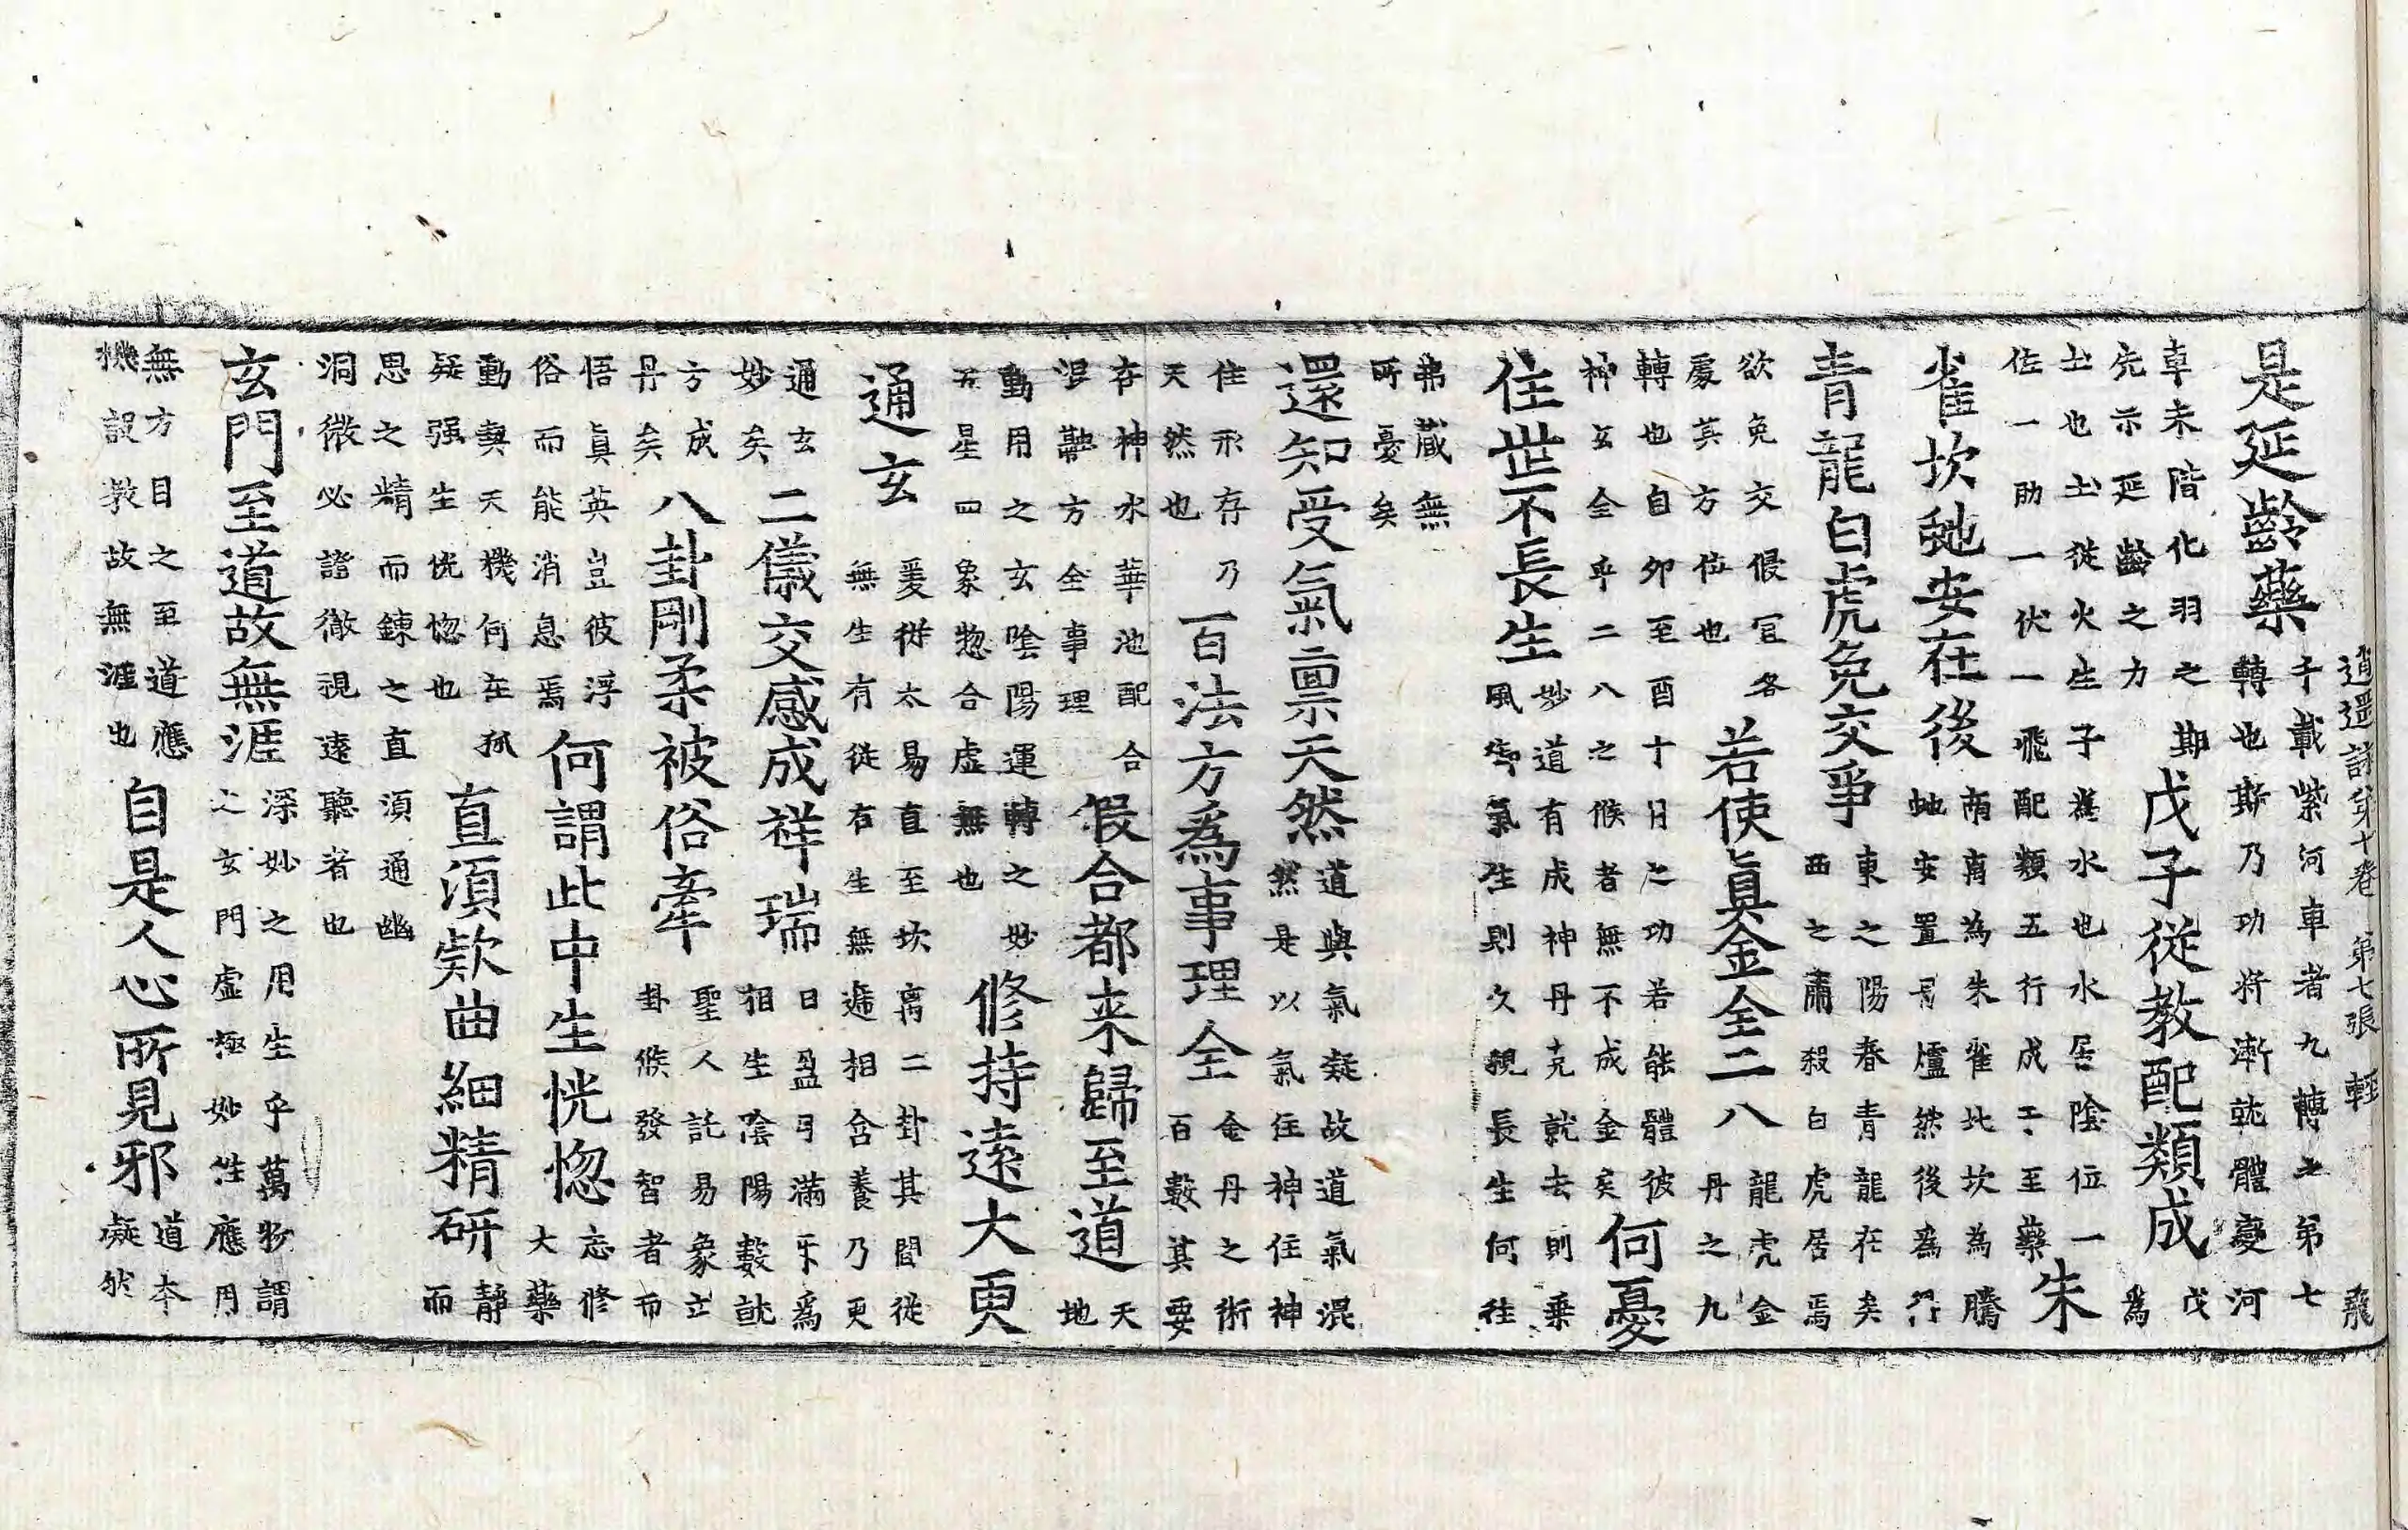 逍遥詠第十卷 第七張 輕 飛
是延齡藥
千載紫河車者九轉之第七
轉也斯乃功將漸就體變河
車未階化羽之期
先示延齡之力
戊子從教配類成
戊
爲
土也土從火生子爲水也水居陰位一
佐一助一伏一飛配類五行成于至藥
朱
雀坎虵安在後
南為朱雀北坎為騰
虵安置爐然後為行
青龍白虎免交爭
東之陽春青龍在矣
西之肅殺白虎居焉
欲免交侵冝各
處其方位也
若使眞金全二八
龍虎金
丹之九
轉也自夘至酉十日之功若能體彼
神玄全乎二八之候者無不成金矣
何憂
住世不長生
妙道有成神丹克就去則乘
風御氣生則久視長生何往
弗藏無
所憂矣
還知受氣禀天然
道與氣凝故道氣混
然是以氣住神住神
住形存乃
天然也
百法方為事理全
金丹之術
百數其要
存神水華池配合
混融方全事理
假合都来歸至道
天
地
動用之玄陰陽運轉之妙
五星四象惣合虛無也
修持遠大更
通玄
爰從太易直至坎离二卦其間從
無生有從有生無遞相含養乃更
通玄
妙矣
二儀交感成祥瑞
日盈月滿互爲
相生陰陽數就
方成
丹矣
八卦剛柔被俗牽
聖人託易象立
卦候發智者而
悟眞英豈彼浮
俗而能消息焉
何謂此中生恍惚
志修
大藥
動契天機何在孤
疑强生恍惚也
直須欵曲細精研
靜
而
思之精而鍊之直須通幽
洞微必諧徹視遠聽者也
玄門至道故無涯
深妙之用生乎萬物謂
之玄門虛極妙性應用
無方目之至道應
機設教故無涯也
自是人心所見邪
道本
凝然